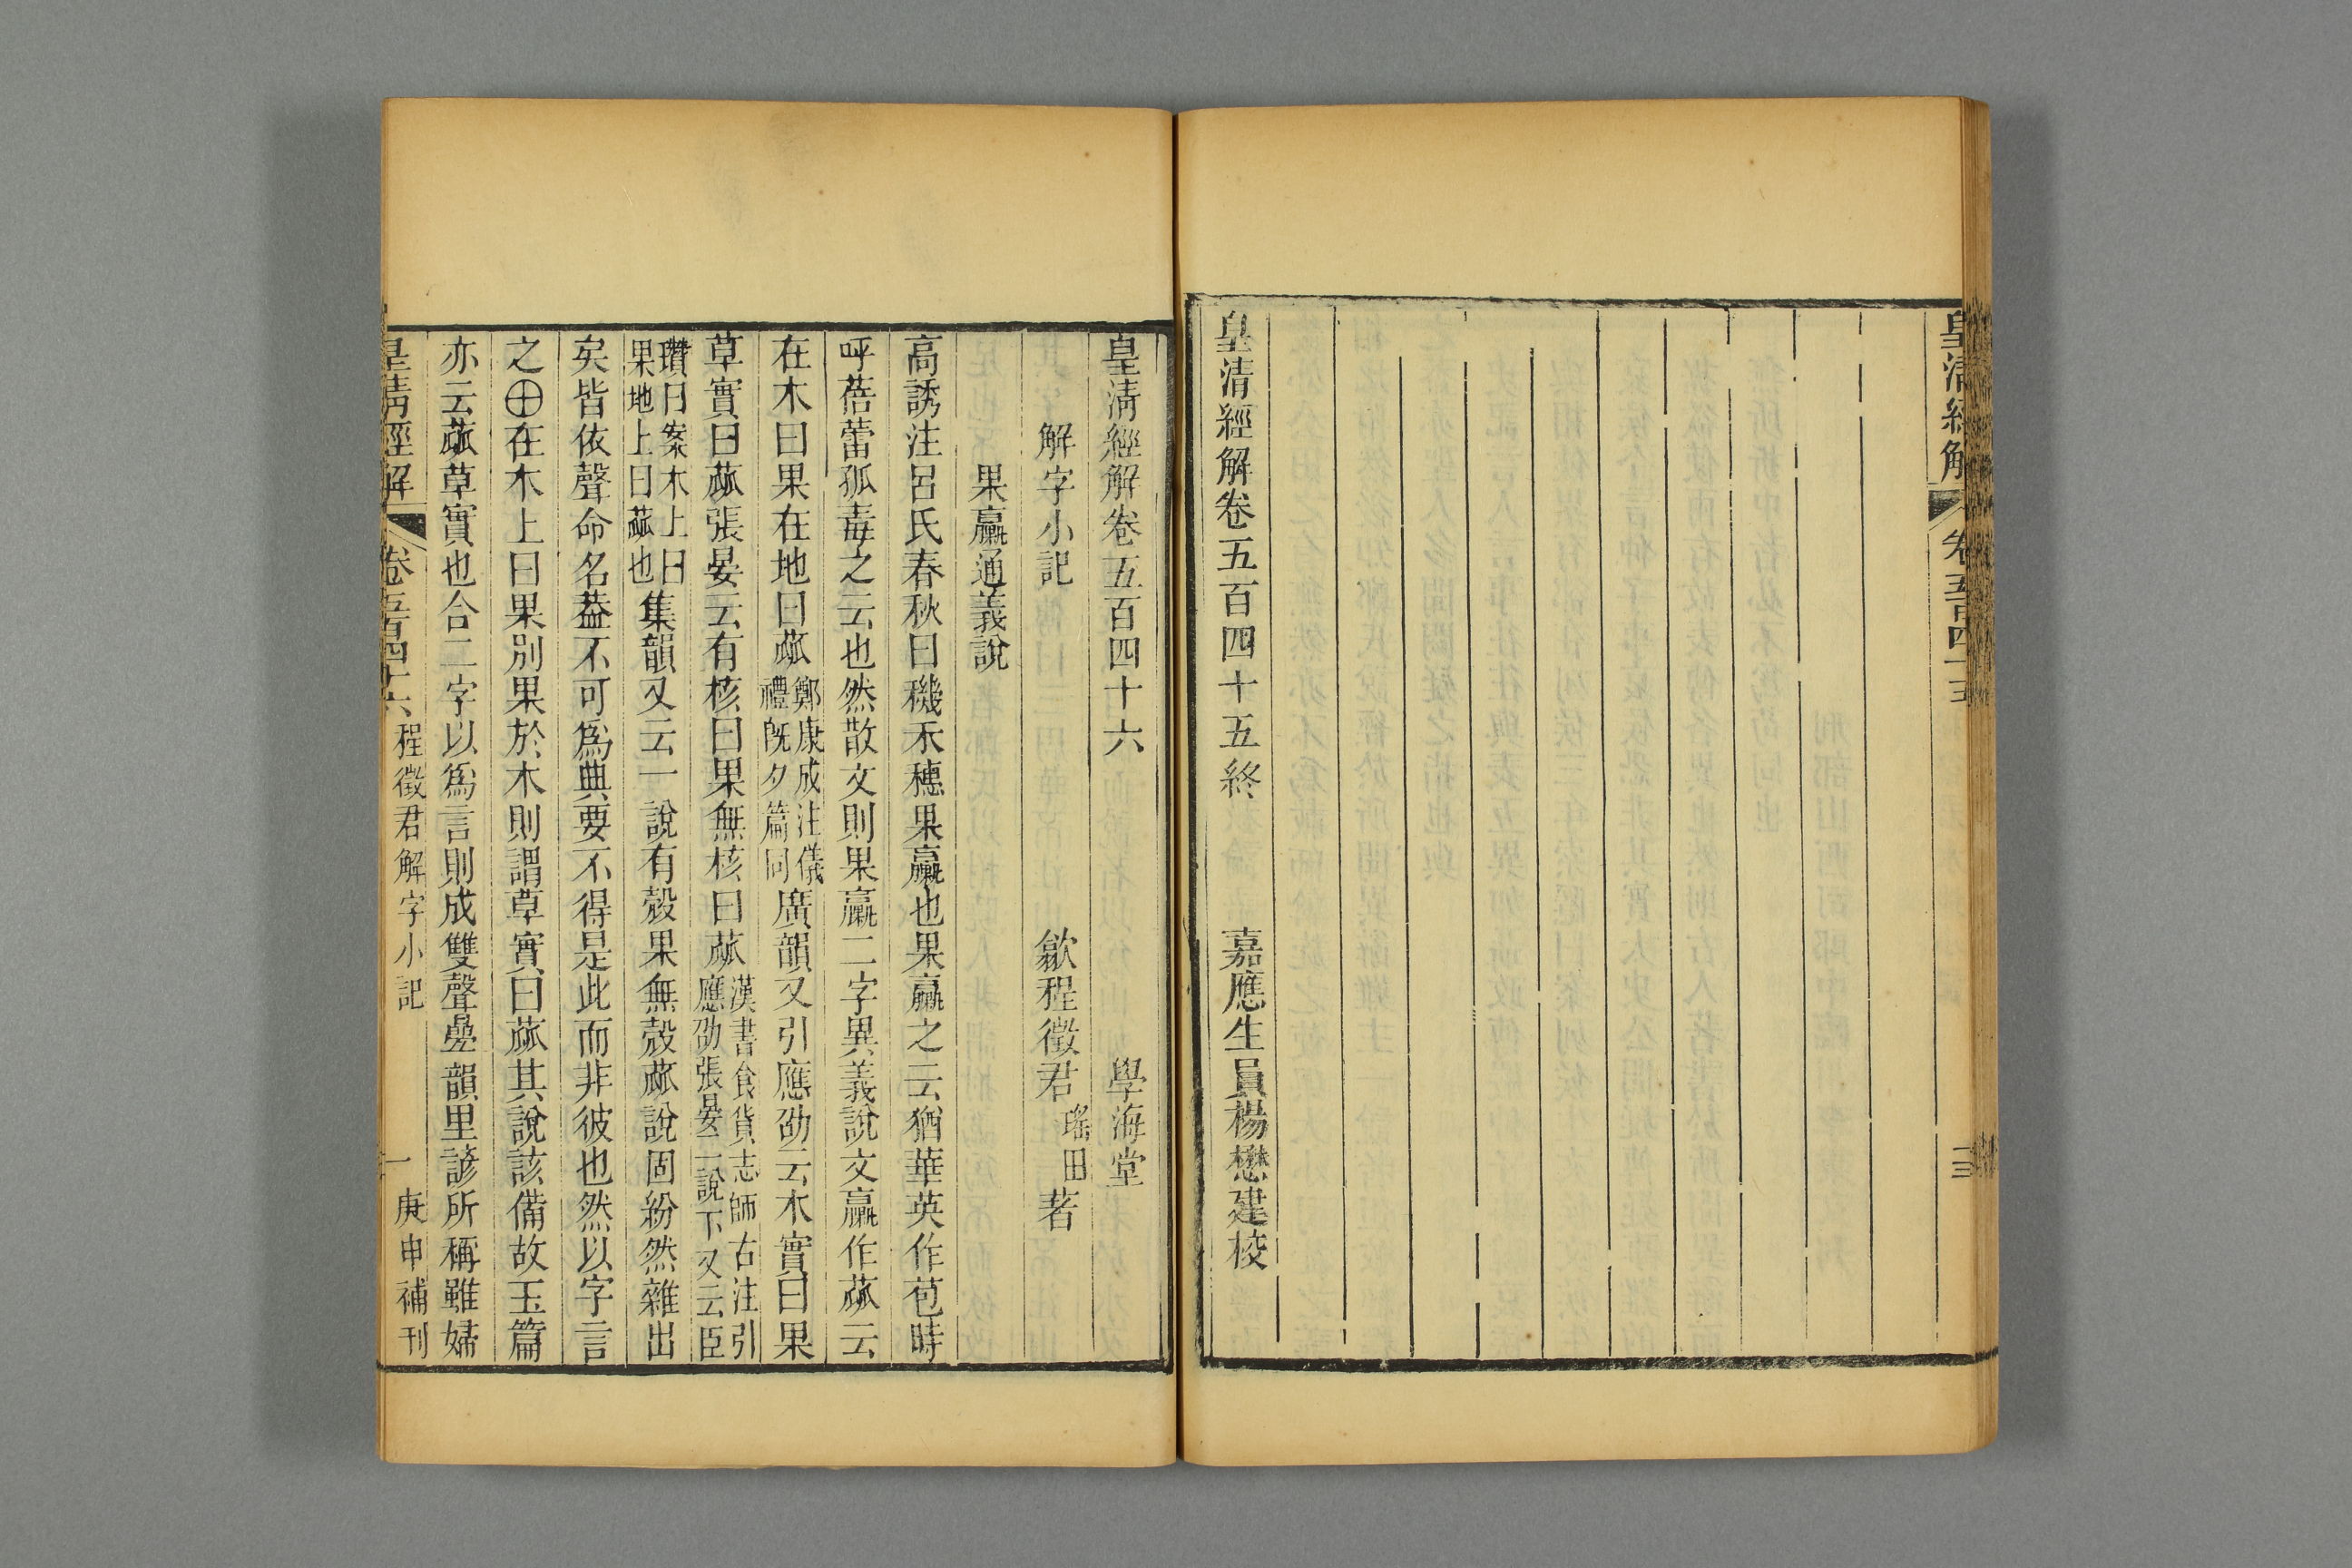 皇清經解
卷五百四十五
十三
皇清經解卷五百四十五終
嘉應生員楊懋建校
皇淸經解卷五百四十六
學海堂
解字小記
歙程徵君瑤田著
果臝通義說
高誘注呂氏春秋曰穖禾穗果臝也果臝之云猶華英作苞時
呼蓓蕾孤毒之云也然散文則果臝二字異義說文臝作蓏云
在木曰果在地曰蓏鄭康成注儀禮旣夕篇同廣韻又引應劭云木實曰果
草實曰蓏張晏云有核曰果無核曰蓏漢書食貨志師古注引應劭張晏二說下又云臣
瓚曰案木上曰果地上曰蓏也集韻又云一說有殼果無殼蓏說固紛然雜出
矣皆依聲命名葢不可爲典要不得是此而非彼也然以字言
之⊕在木上曰果別果於木則謂草實曰蓏其說該備故玉篇
亦云蓏草實也合二字以爲言則成雙聲疊韻里諺所稱雖婦
皇淸經解
卷五百四十六
程徵君解字小記
一
庚申補刊